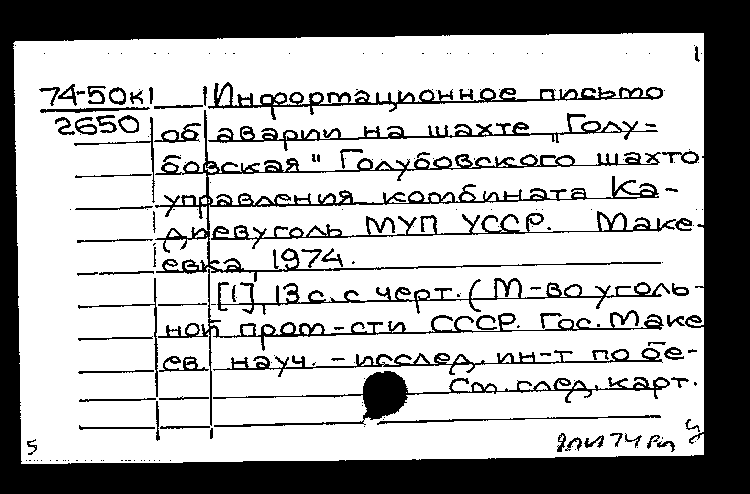 1
74-50к Информационное письмо
2650 об аварии на шахте „Голу-
бовская" Голубовского шахто-
управления комбината Ка-
диевуголь МУП УССР. Маке-
евка, 1974.
[1], 13 с. с черт. (М-во уголь-
ной пром-сти СССР. Гос. Маке
ев. науч. - исслед. ин-т по бе-
См. след. карт.
5